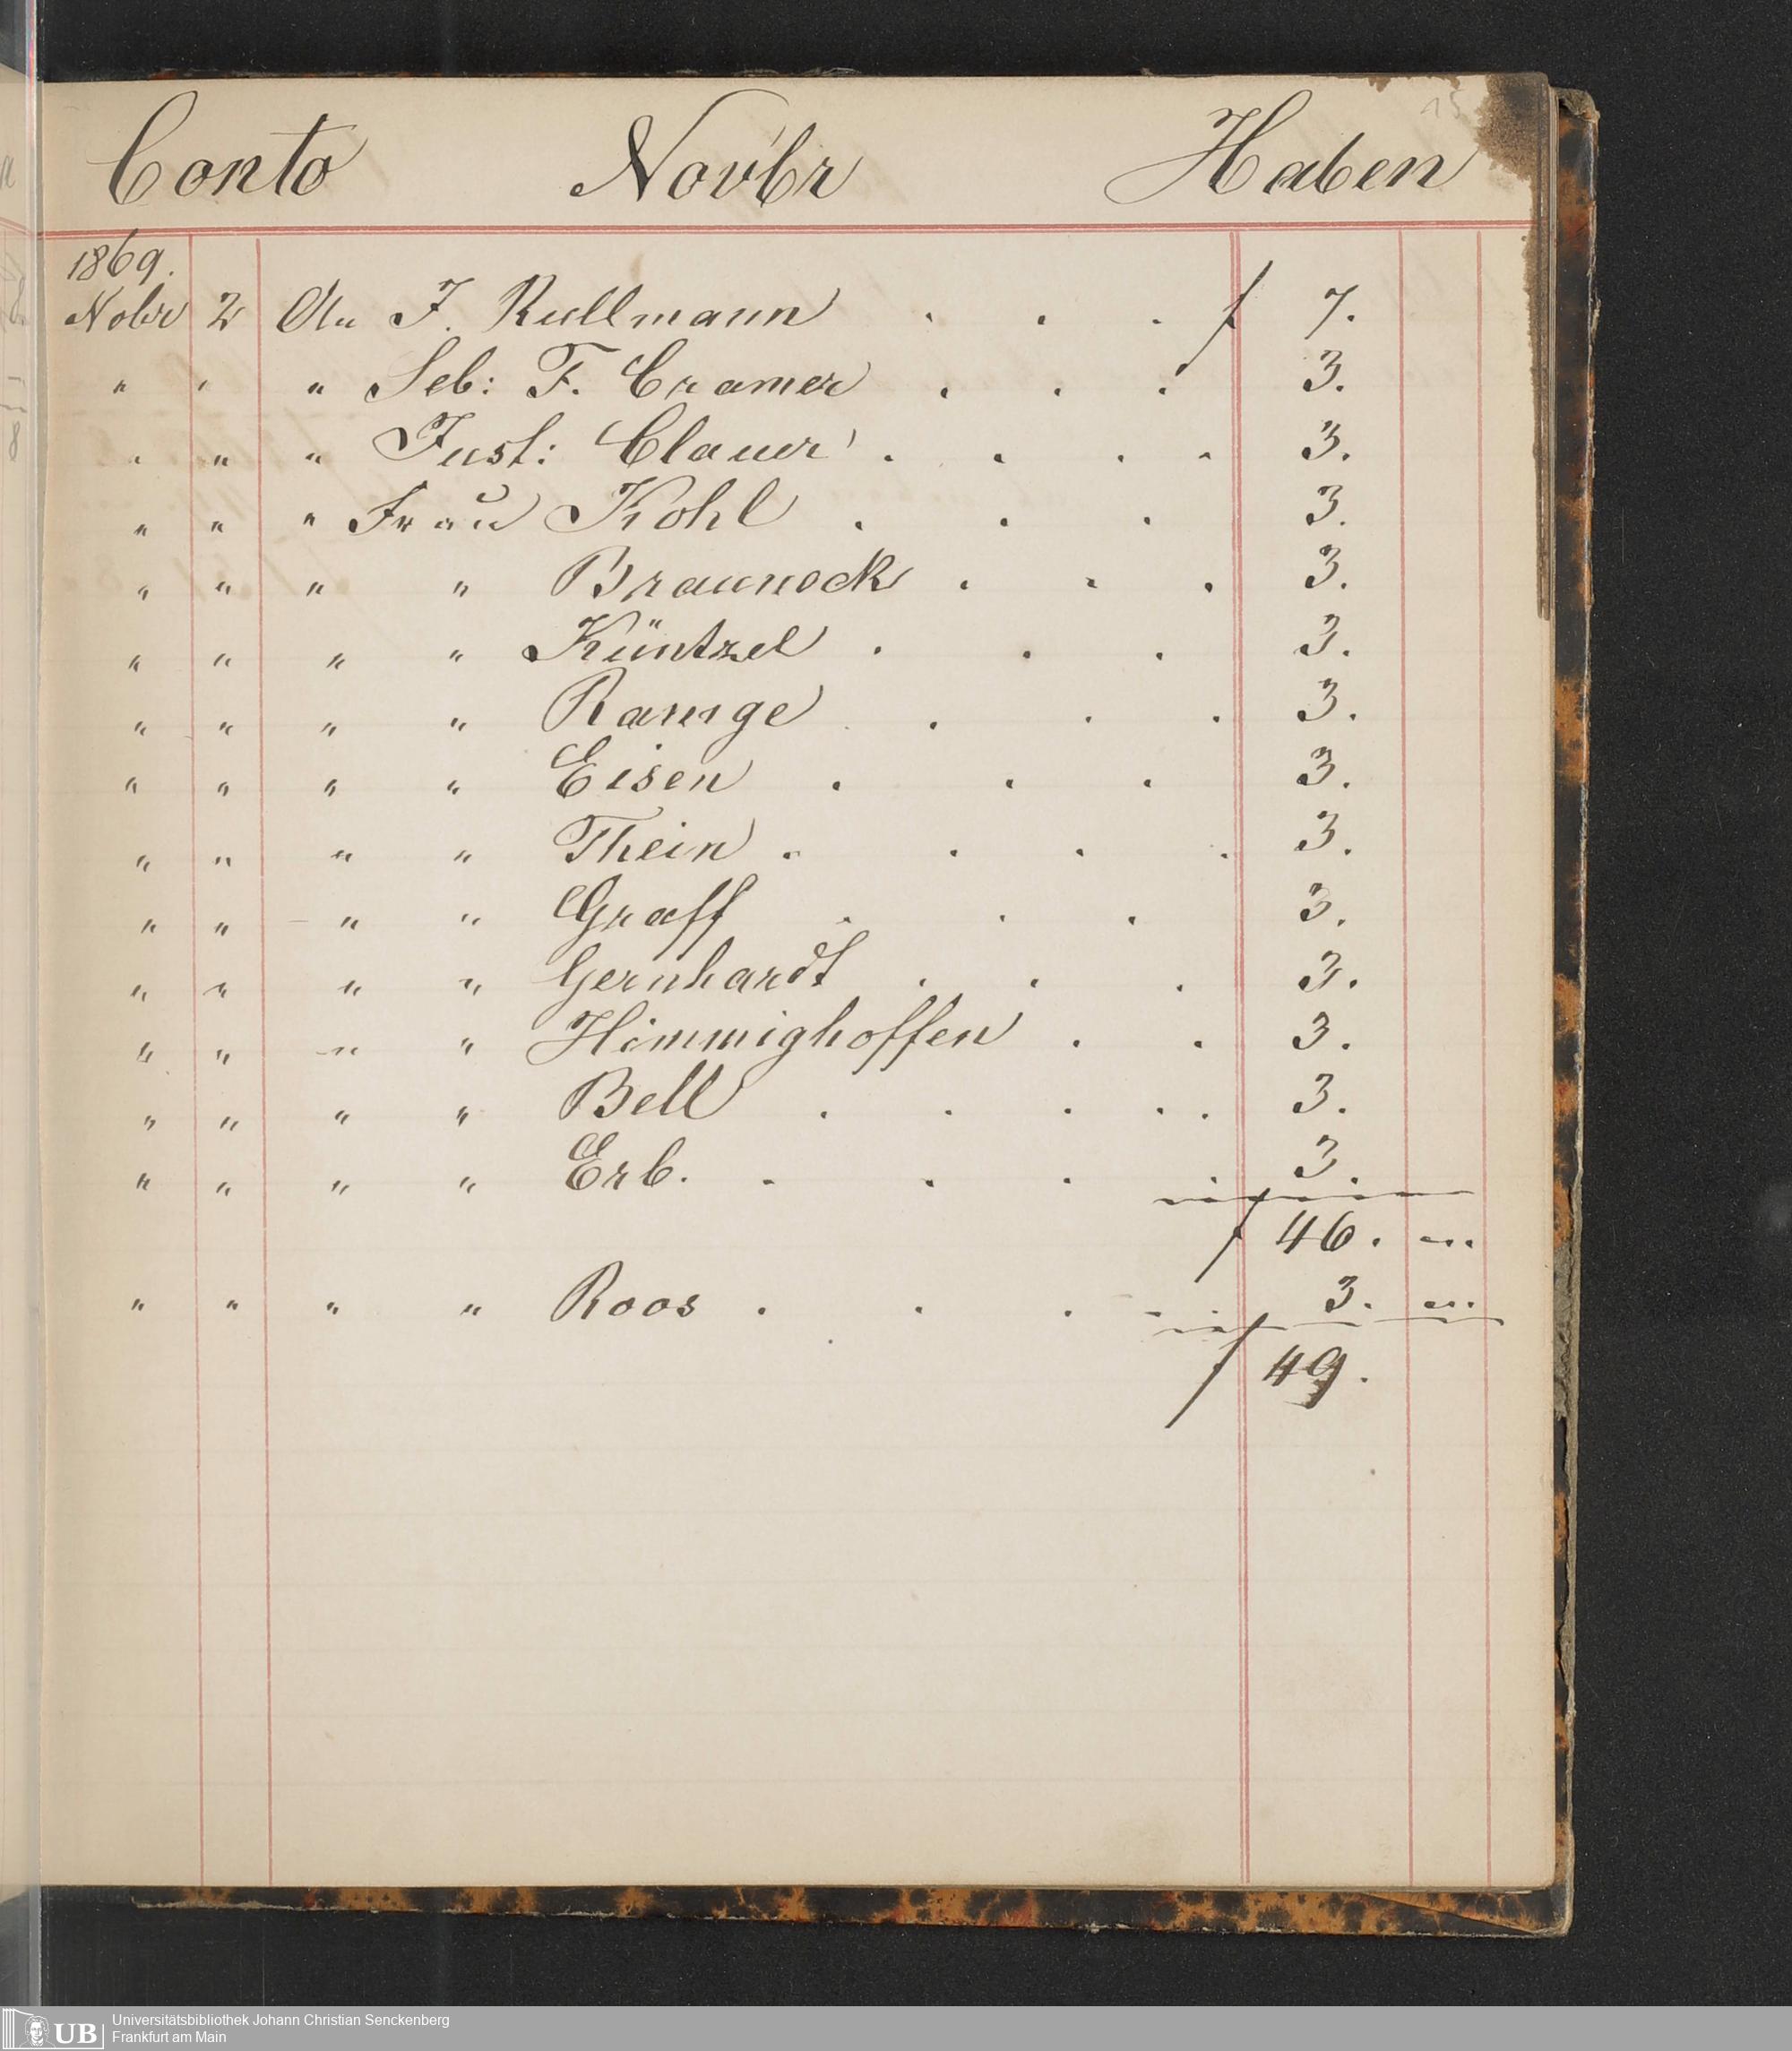 15
Conto Novbr Haben
1869.
Nobr 2 An J. Rullmann . . . f 7.
" " " Seb: F. Cramer . . . 3.
" " " Just: Clauer . . . . 3.
" " " Frau Kohl . . . 3.
" " " " Brauneck . . . 3.
" " " " Küntzel . . . 3.
" " " " Ramge . . . 3.
" " " " Eisen . . . 3.
" " " " Thein . . . . 3.
" " " " Graff . . . 3.
" " " " Gernhardt . . . 3.
" " " " Himmighoffen . . 3.
" " " " Bell . . . . . 3.
" " " " Erb. . . . . 3.
f 46. "..
" " " " Roos . . . . . 3. "..
f 49.
UB Universitätsbibliothek Johann Christian Senckenberg
Frankfurt am Main